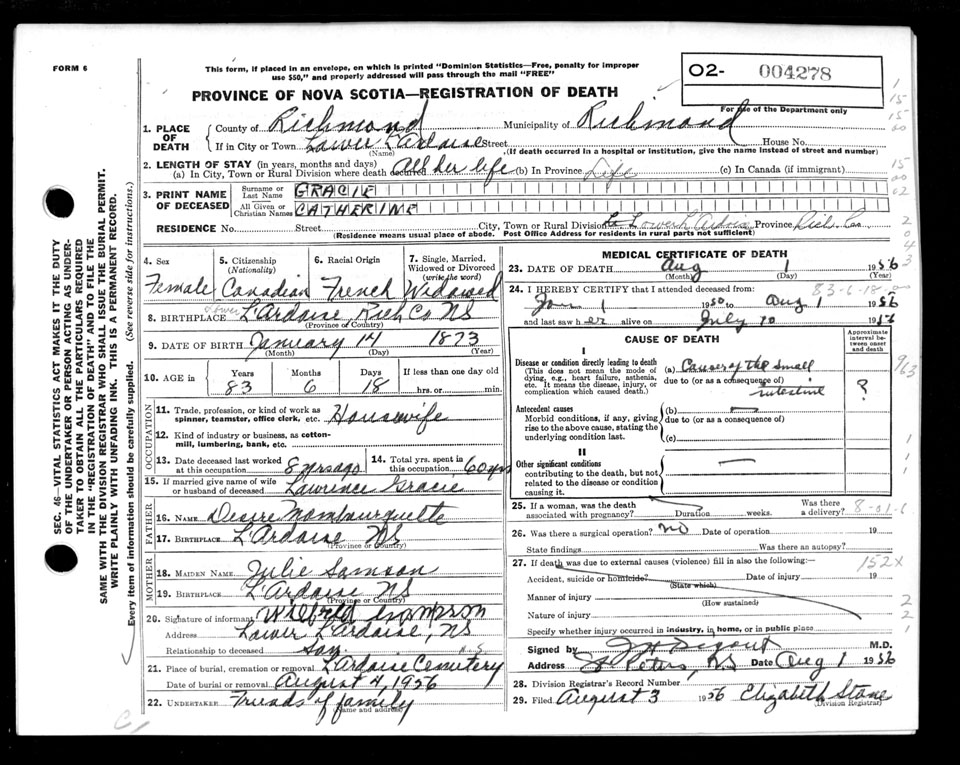 FORM 6
This form, if placed in an envelope, on which is printed "Dominion Statistics—Free, penalty for improper
use $50," and properly addressed will pass through the mail "FREE"
O2- 004278
PROVINCE OF NOVA SCOTIA—REGISTRATION OF DEATH
For use of the Department only
1. PLACE OF DEATH
County of Richmond Municipality of Richmond
If in City or Town Lower L'Ardoise Street House No.
(Name) (If death occurred in a hospital or institution, give the name instead of street and number)
2. LENGTH OF STAY (in years, months and days)
(a) In City, Town or Rural Division where death occurred All her life (b) In Province Life (c) In Canada (if immigrant)
3. PRINT NAME OF DECEASED
Surname or Last Name GRACIE
All Given or Christian Names CATHERINE
RESIDENCE No. Street City, Town or Rural Division Lower L'Ardoise Province Rich. Co.
(Residence means usual place of abode. Post Office Address for residents in rural parts not sufficient)
4. Sex
Female
5. Citizenship
(Nationality)
Canadian
6. Racial Origin
French
7. Single, Married, Widowed or Divorced
(write the word)
Widowed
8. BIRTHPLACE Lower L'Ardoise Rich Co NS
(Province or Country)
9. DATE OF BIRTH January 14 1873
(Month) (Day) (Year)
10. AGE in Years Months Days If less than one day old
83 6 18 hrs. or min.
OCCUPATION
11. Trade, profession, or kind of work as spinner, teamster, office clerk, etc. Housewife
12. Kind of industry or business, as cotton-mill, lumbering, bank, etc.
13. Date deceased last worked at this occupation 8 yrs ago
14. Total yrs. spent in this occupation 60 yrs
15. If married give name of wife or husband of deceased Lawrence Gracie
FATHER
16. NAME Desire Mombourquette
17. BIRTHPLACE L'Ardoise NS
(Province or Country)
MOTHER
18. MAIDEN NAME Julie Samson
19. BIRTHPLACE L'Ardoise NS
(Province or Country)
20. Signature of informant Wilfred
Address Lower L'Ardoise, NS
Relationship to deceased Son
21. Place of burial, cremation or removal L'Ardoise Cemetery
Date of burial or removal August 4, 1956
22. UNDERTAKER Friends of family
(Name and address)
MEDICAL CERTIFICATE OF DEATH
23. DATE OF DEATH Aug 1 1956
(Month) (Day) (Year)
24. I HEREBY CERTIFY that I attended deceased from: 83-6-18-
Jan 1 1950 to Aug 1 1956
and last saw her alive on July 1956
CAUSE OF DEATH
Approximate interval between onset and death
I
Disease or condition directly leading to death
(This does not mean the mode of dying, e.g., heart failure, asthenia, etc. It means the disease, injury, or complication which caused death.)
(a) Cancer of the small
due to (or as a consequence of)
intestine ?
Antecedent causes
Morbid conditions, if any, giving rise to the above cause, stating the underlying condition last.
(b) —
due to (or as a consequence of)
(c)
II
Other significant conditions
contributing to the death, but not related to the disease or condition causing it.
25. If a woman, was the death associated with pregnancy? Duration weeks. Was there a delivery?
26. Was there a surgical operation? no Date of operation 19
State findings Was there an autopsy?
27. If death was due to external causes (violence) fill in also the following: 152X
Accident, suicide or homicide? Date of injury 19
(State which)
Manner of injury
(How sustained)
Nature of injury
Specify whether injury occurred in industry, in home, or in public place
Signed by M.D.
Address St Peters, NS Date Aug 1 1956
28. Division Registrar's Record Number
29. Filed August 3 1956 Elizabeth Stone
(Division Registrar)
SEC. 46—VITAL STATISTICS ACT MAKES IT THE DUTY
OF THE UNDERTAKER OR PERSON ACTING AS UNDER-
TAKER TO OBTAIN ALL THE PARTICULARS REQUIRED
IN THE "REGISTRATION OF DEATH" AND TO FILE THE
SAME WITH THE DIVISION REGISTRAR WHO SHALL ISSUE THE BURIAL PERMIT.
WRITE PLAINLY WITH UNFADING INK. THIS IS A PERMANENT RECORD.
Every item of information should be carefully supplied. (See reverse side for instructions.)